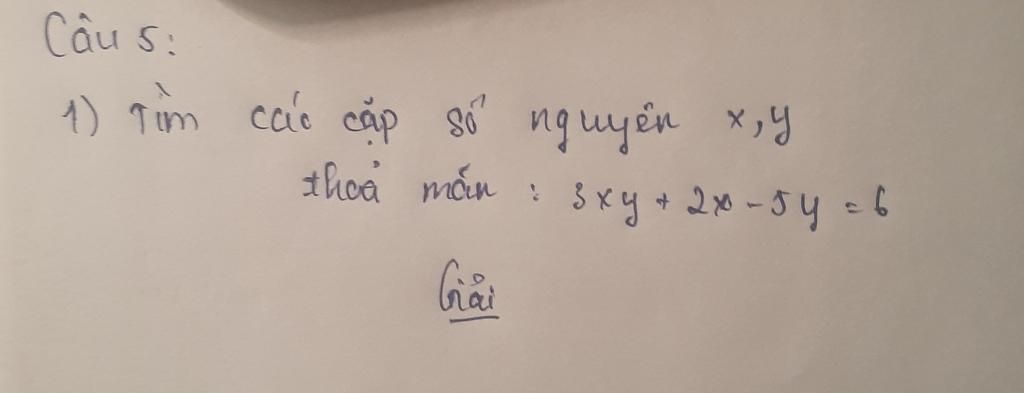 Câu 5:
1) Tìm các cặp số nguyên x, y
thoả mãn : 3xy + 2x - 5y = 6
Giải